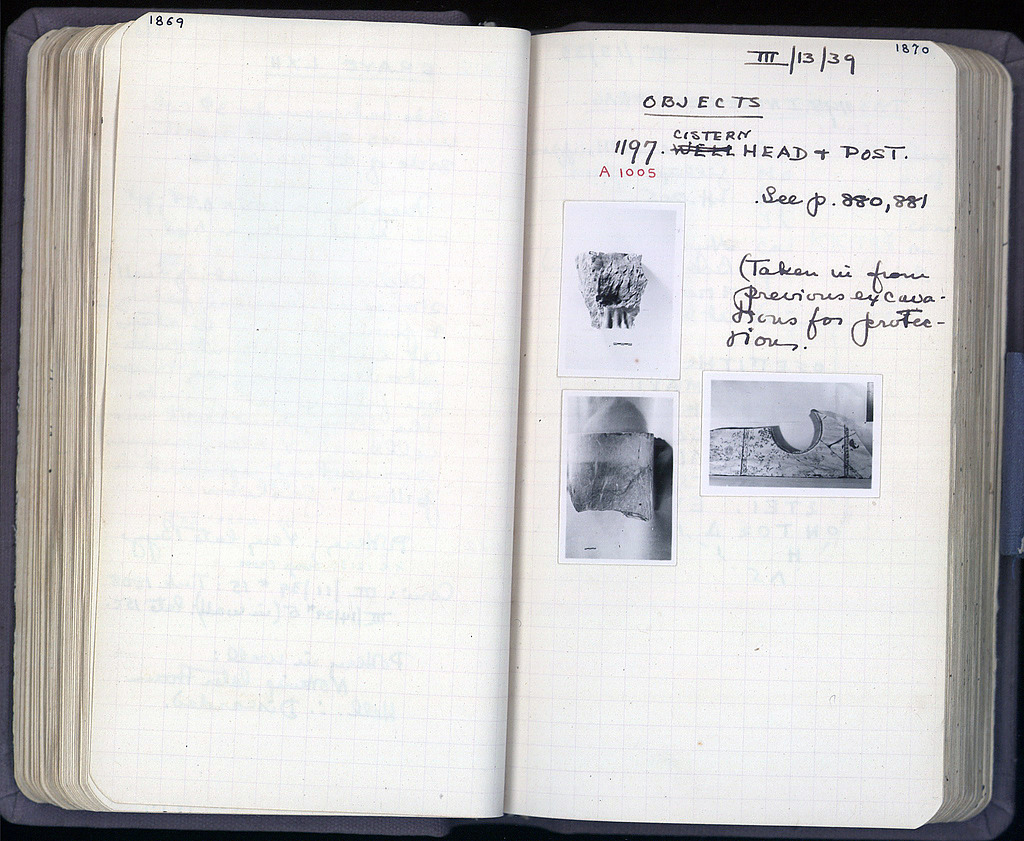 1869
1870
III/13/39
OBJECTS
CISTERN
1197. WELL HEAD + POST.
A 1005
See p. 880, 881
(Taken in from
previous excava-
tions for protec-
tions.